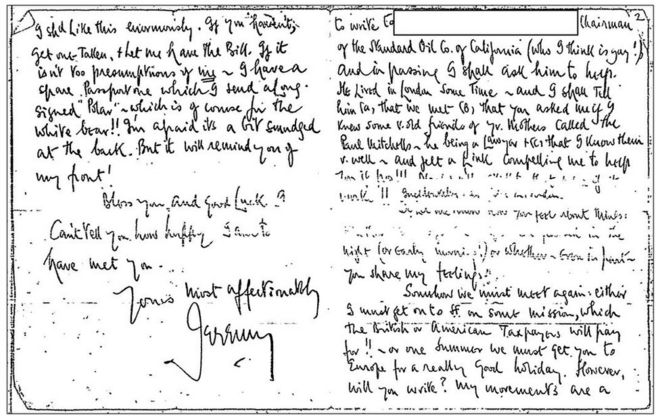 I shd like this enormously. If you haven't,
get one taken, & let me have the Bill. If it
isn't too presumptious of me ~ I have a
spare Passport one which I send along ~
signed "Bear" ~ which is of course for the
white bear!! I'm afraid it's a bit smudged
at the back. But it will remind you of
my front!
Bless you and good luck. I
can't tell you how happy I am to
have met you ~
Yours most affectionately
Jeremy
2
to write to Chairman
of the Standard Oil Co. of California (who I think is gay!)
and in passing I shall ask him to help.
He lived in London some time ~ and I shall tell
him (a) that we met (b) that you asked me if I
knew some v. old friends of yr. Mothers called the
Paul Mitchells ~ he being a Lawyer & (c) that I know them
v. well ~ and felt a link compelling me to help
you feel about things:
in the
night (or early morning!) or whether ~ even in part ~
you share my feelings.
Somehow we must meet again: either
I must get on to SF on some mission, which
the British or American Taxpayers will pay
for!! ~ or one Summer we must get you to
Europe for a really good holiday. However,
will you write? My movements are a